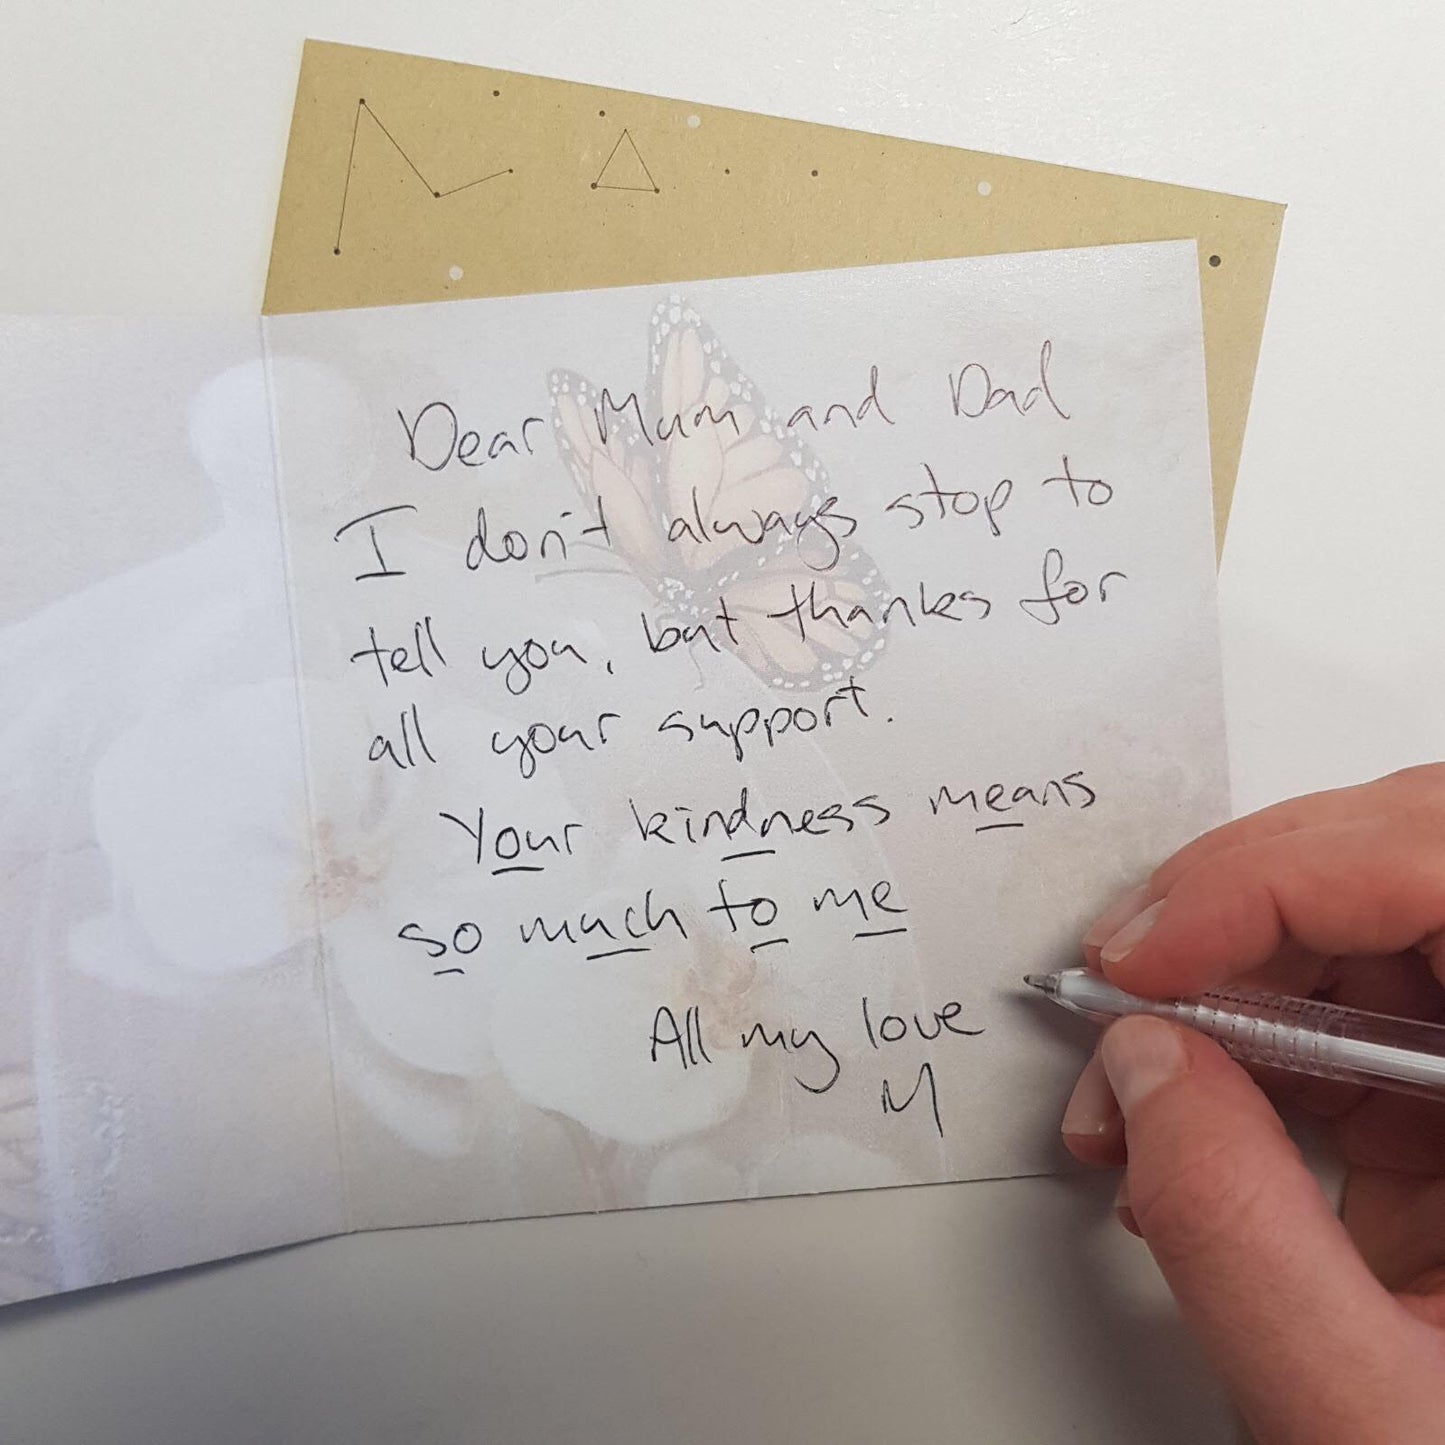 Dear Mum and Dad
I don't always stop to
tell you, but thanks for
all your support.
Your kindness means
so much to me
All my love
M